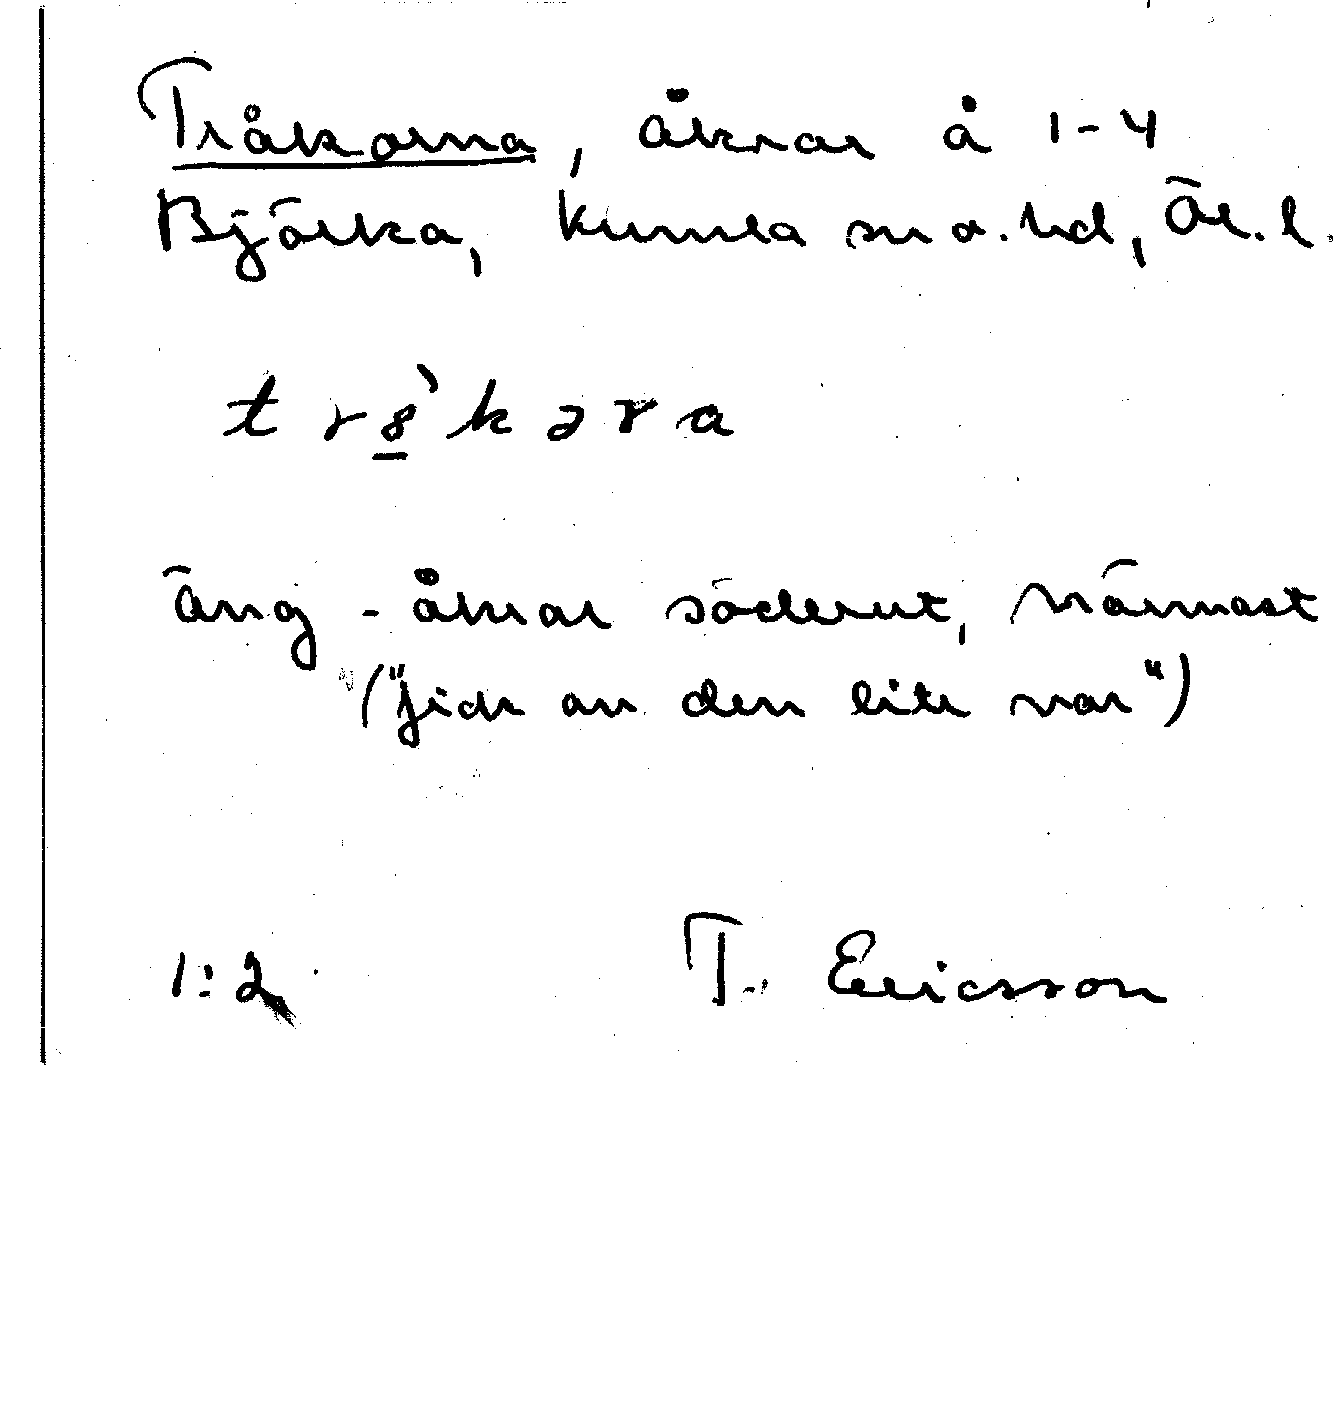 Tråkorna, åkrar å 1-4
Björka, Kumla sn o. hd, Ör. l.
tr 8̱̀ kəra
äng - åkrar söderut, närmast
("jick an den lite var")
1:2 T. Ericsson